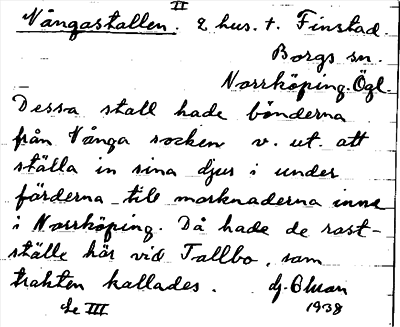 II
Vångastallen. 2 hus. t. Finstad
Borgs sn.
Norrköping. Ögl.
Dessa stall hade bönderna
från Vånga socken v. ut. att
ställa in sina djur i under
färderna till marknaderna inne
i Norrköping. Då hade de rast-
ställe här vid Tallbo, som
trakten kallades.
Se III 1938